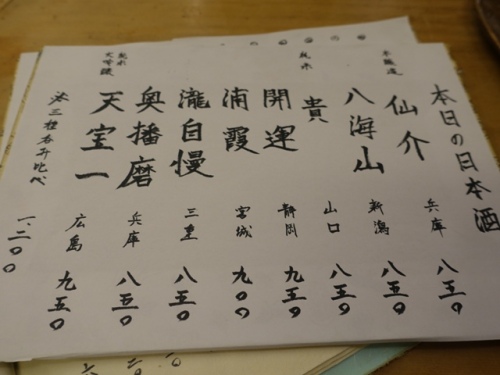 本日の日本酒
本醸造
仙介 兵庫 八五〇
八海山 新潟 八五〇
純米
貴 山口 八五〇
開運 静岡 九五〇
浦霞 宮城 九〇〇
瀧自慢 三重 八五〇
奥播磨 兵庫 八五〇
純米
大吟醸
天宝一 広島 九五〇
三種呑み比べ 一、二〇〇